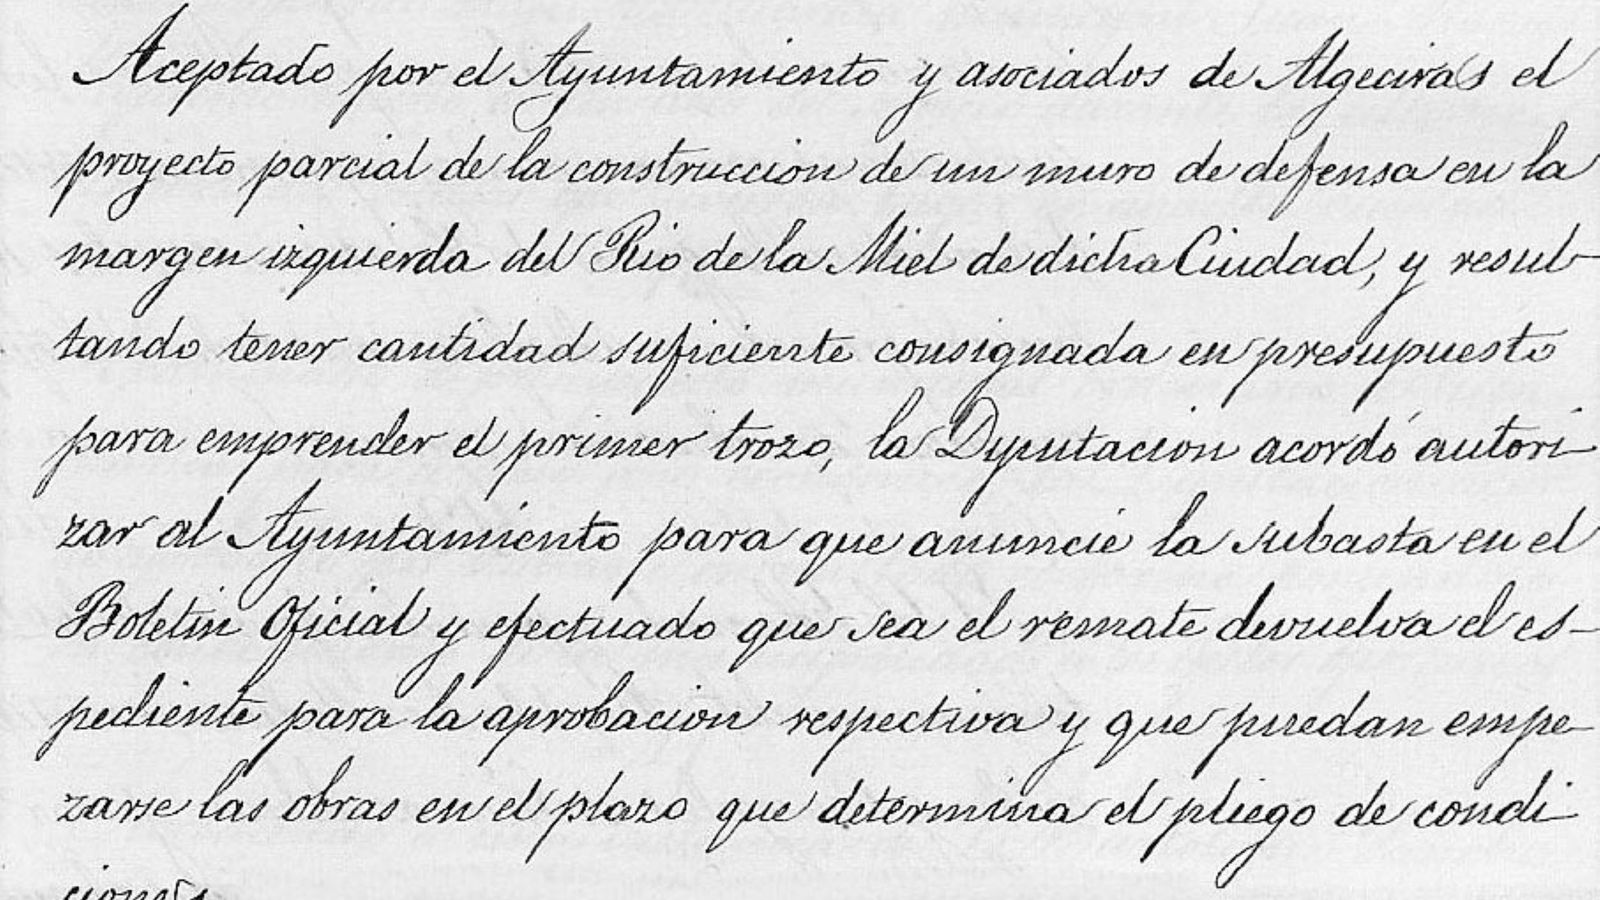 Aceptado por el Ayuntamiento y asociados de Algeciras el
proyecto parcial de la construccion de un muro de defensa en la
margen izquierda del Rio de la Miel de dicha Ciudad, y resul-
tando tener cantidad suficiente consignada en presupuesto
para emprender el primer trozo, la Dyputacion acordó autori-
zar al Ayuntamiento para que anuncie la subasta en el
Boletin Oficial y efectuado que sea el remate devuelva el es-
pediente para la aprobacion respectiva y que puedan empe-
zarse las obras en el plazo que determina el pliego de condi-
ciones